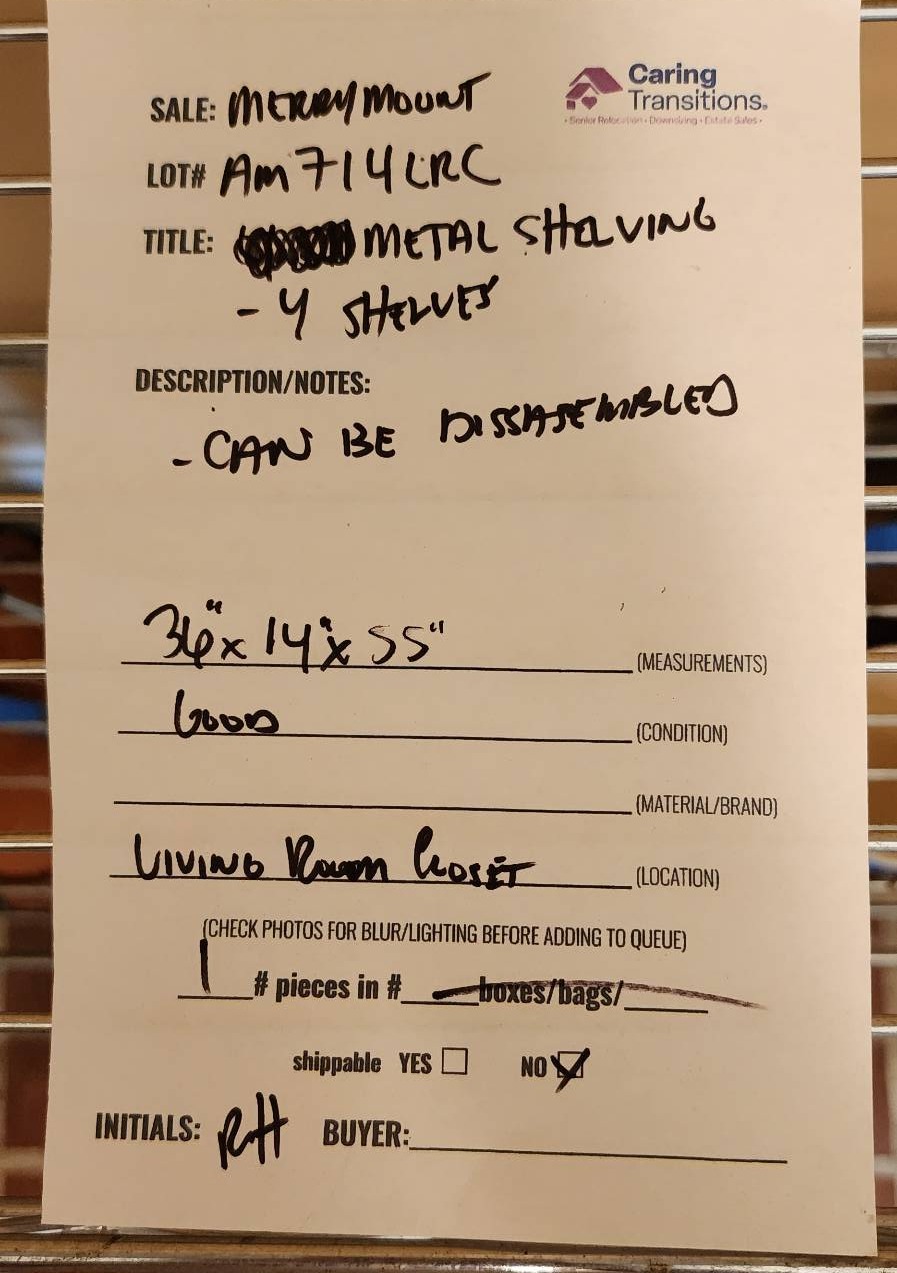 Caring
Transitions®
• Senior Relocation • Downsizing • Estate Sales •
SALE: MERRYMOUNT
LOT# Am714LRC
TITLE: METAL SHELVING
- 4 SHELVES
DESCRIPTION/NOTES:
- CAN BE DISSASEMBLED
36" x 14" x 55" (MEASUREMENTS)
GOOD (CONDITION)
(MATERIAL/BRAND)
LIVING ROOM CLOSET (LOCATION)
(CHECK PHOTOS FOR BLUR/LIGHTING BEFORE ADDING TO QUEUE)
1 # pieces in # boxes/bags/
shippable YES NO
INITIALS: RH BUYER: